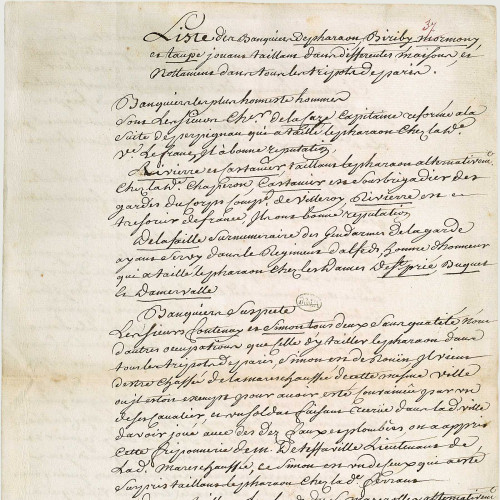 37
Liste des Banquiers de pharaon Biriby mormony
et taupe jouans taillans dans differentes maisons, et
Nottament dans tous les tripots de paris.
Banquiers les plus honnestes hommes
Sont Les Sieurs Cher. de la Caze Capitaine reformé a la
Suite de perpignan qui a taillé le pharaon Chez la de.
ve. Le franc, Jl a bonne reputation,
Rivierre et Castanier taillans le pharaon alternativemt.
Chez la de. Chaperon Castanier est Sousbrigadier des
gardes du Corps Compe. de villeroy Rivierre est
tresorier de france, Jls ont bonne reputation
De la faille Surnumeraire des Gendarmes de la garde
ayant Servy dans le Regiment d'alfeds homme d'honneur
qui a taillé le pharaon Chez les Dames De St. prié Buquet
et Damervalle
Banquiers Suspects
Les Sieurs Coutenay et Simon tous deux Sans qualité N'ont
d'autres occupations que Celle d'y tailler le pharaon dans
tous les tripots de paris, Simon est de Roüen, Jl vient
d'estre Chassé de la mareschaussée de cette mesme ville
ou Jl estoit exempt pour avoir esté
de ses Cavaliers, et un Soldat d'avoir joué avec des dez faux et plombiers on a appris
Cette friponnerie de m. De teffaville Lieutenant de
Lad. Mareschaussée, ce Simon est un de ceux qui a esté
Surpris taillant le pharaon Chez la de. ferrans